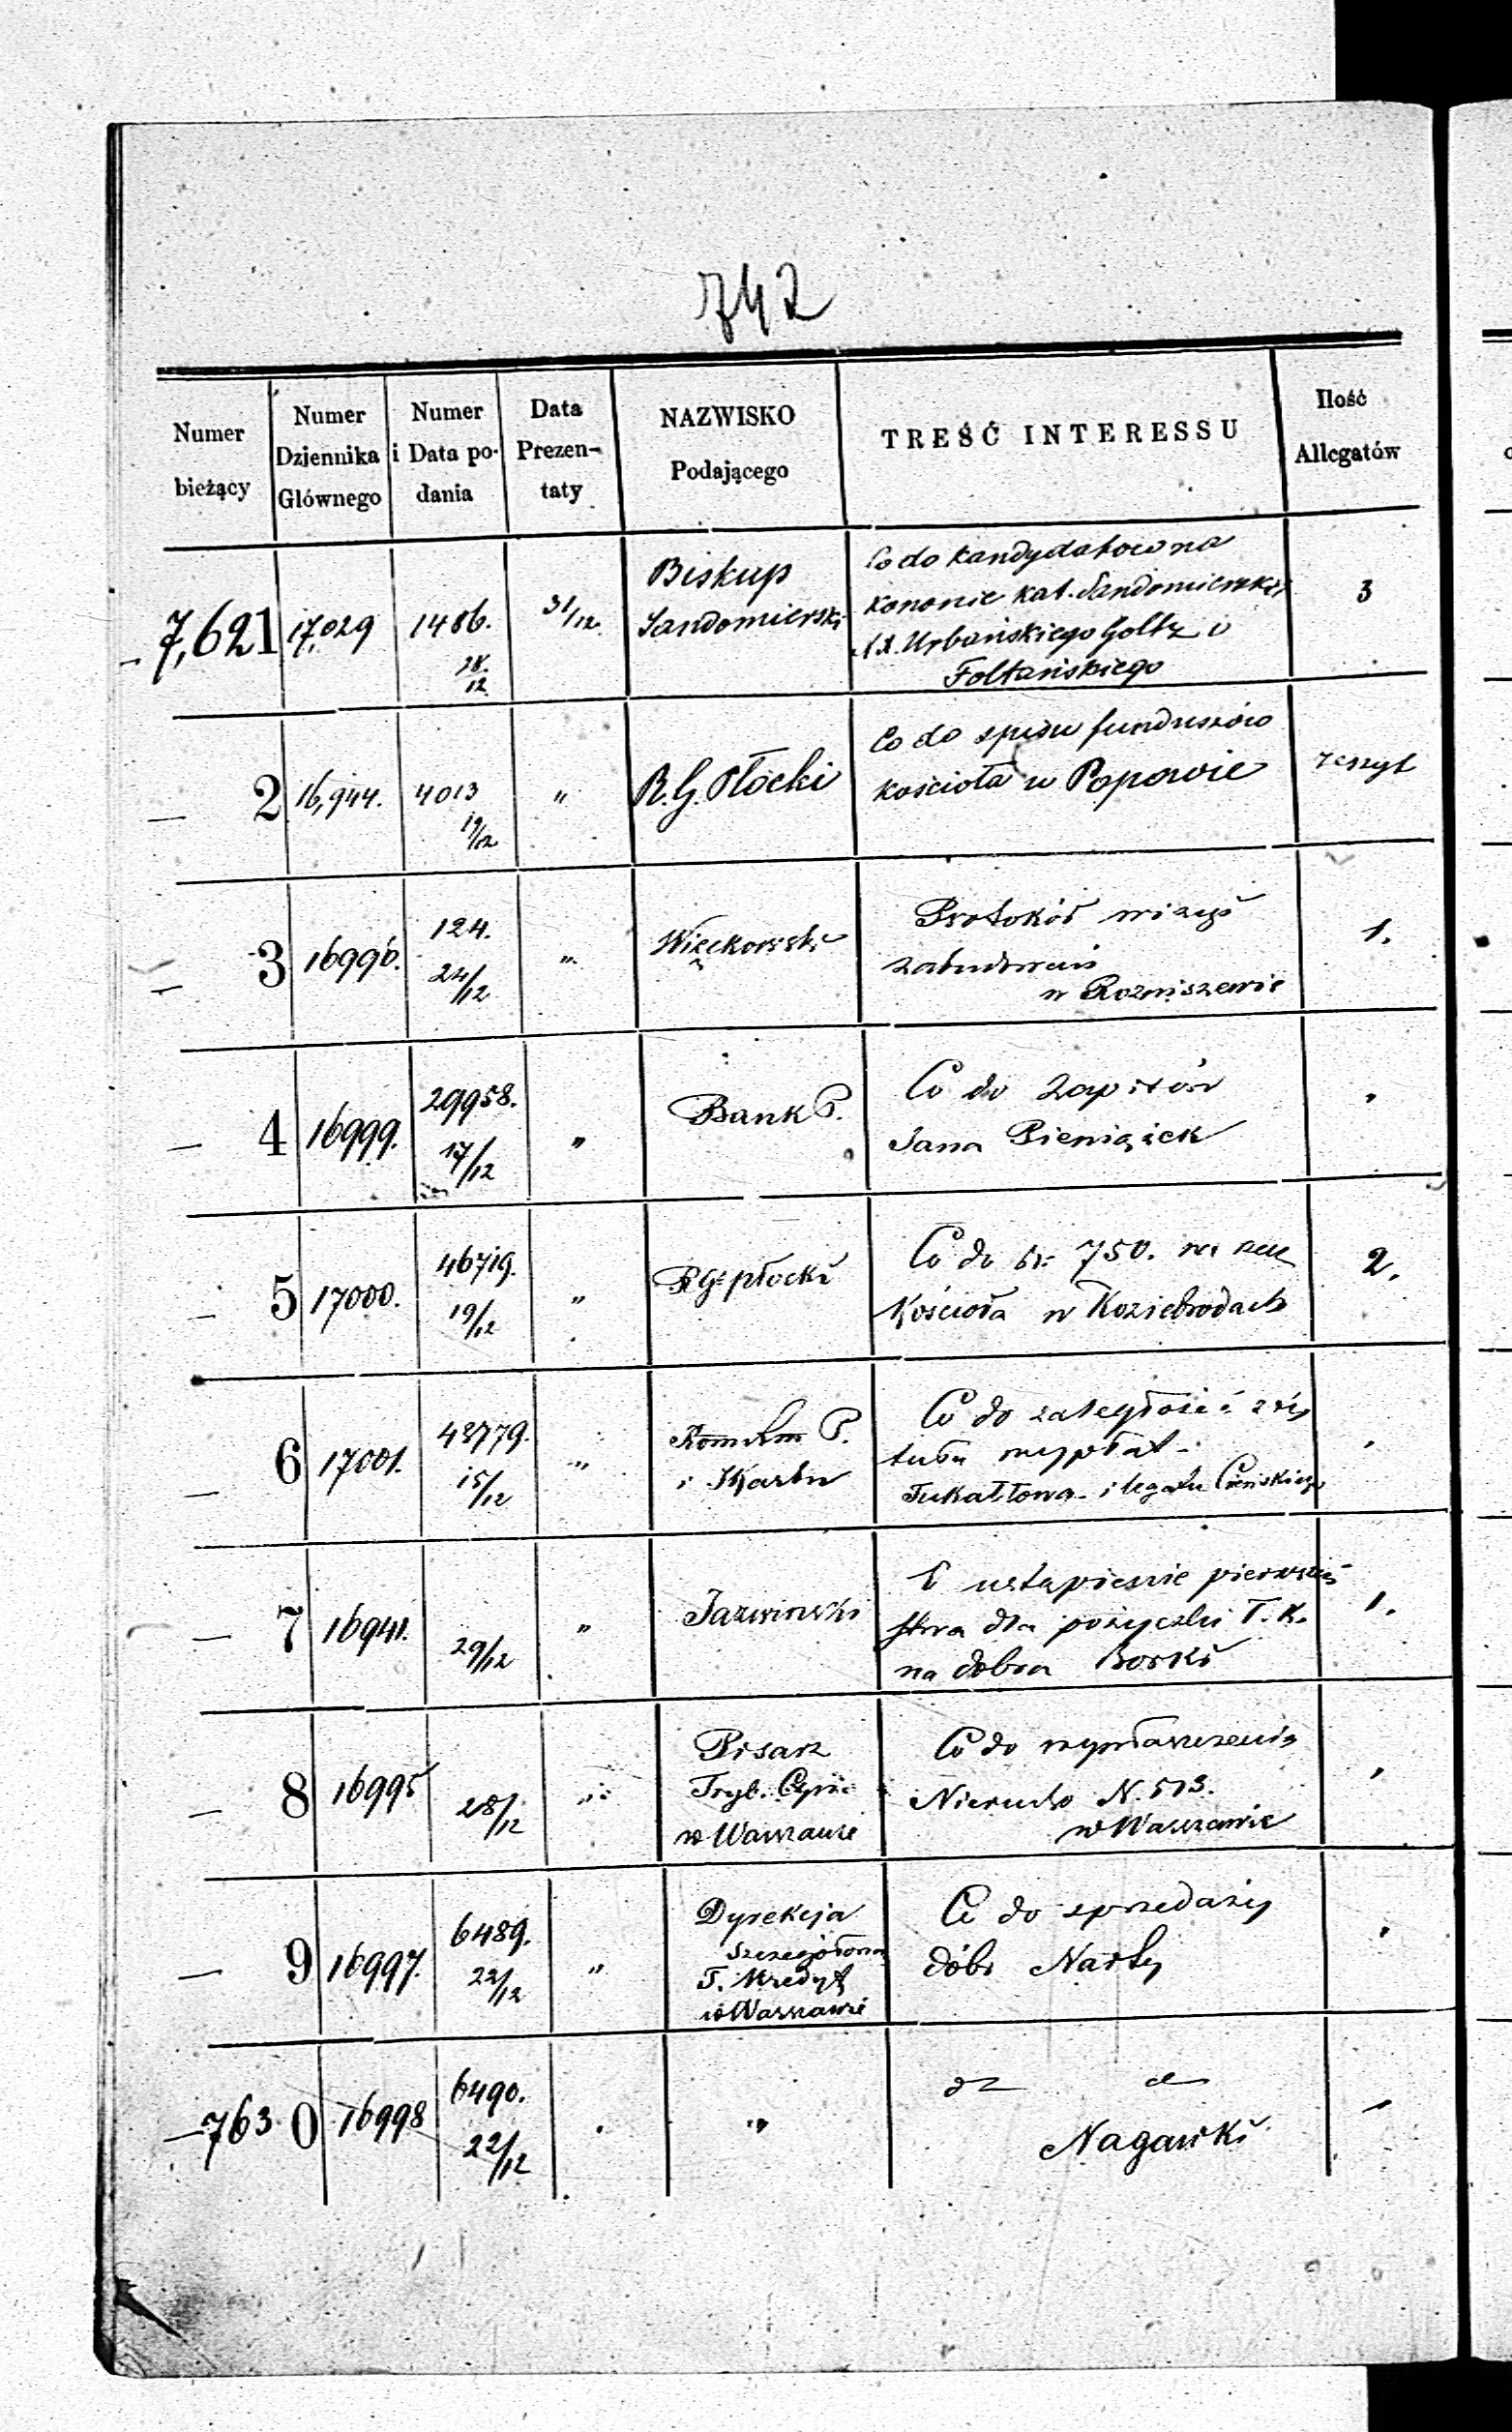 742
Numer bieżący | Numer Dziennika Głównego | Numer i Data podania | Data Prezentaty | NAZWISKO Podającego | TREŚĆ INTERESSU | Ilość Allegatów
7,621 | 17,029 | 1486. 28/12 | 31/12 | Biskup Sandomierski | Co do Kandydatow na Kanonie Kat. Sandomierską Urbańskiego Goltz i Foltańskiego | 3
2 | 16,944. | 4013 19/12 | " | R. G. Płocki | Co do spisu funduszów Kościoła w Popowie | zeszyt
3 | 16996. | 124. 24/12 | " | Więckowski | Protokół wizyi zabudowań w Rozniszewie | 1.
4 | 16999. | 29958. 17/12 | " | Bank P. | Co do zapisów Jana Pieniążek
5 | 17000. | 46719. 19/12 | " | R G płocki | Co do 750. na Kościoła w Koziebrodach | 2.
6 | 17001. | 15/12 | " | P. i Skarbu | Co do zaległości z tytułu wypłat i legatu
7 | 16941. | 29/12 | " | Jazwinski | O ustąpienie pierwszeństwa dla pożyczki T. K. na dobra Borki | 1.
8 | 16995 | 28/12 | " | Pisarz Tryb. Cyw. w Warszawie | Co do wywłaszczenia Nierucho N. 513. w Warszawie
9 | 16997. | 6489. 22/12 | " | Dyrekcja Szczegółowa T. Kredyt w Warszawie | Co do sprzedaży dóbr Narty
7630 | 16998 | 6490. 22/12 | " | dto dto Nagawki